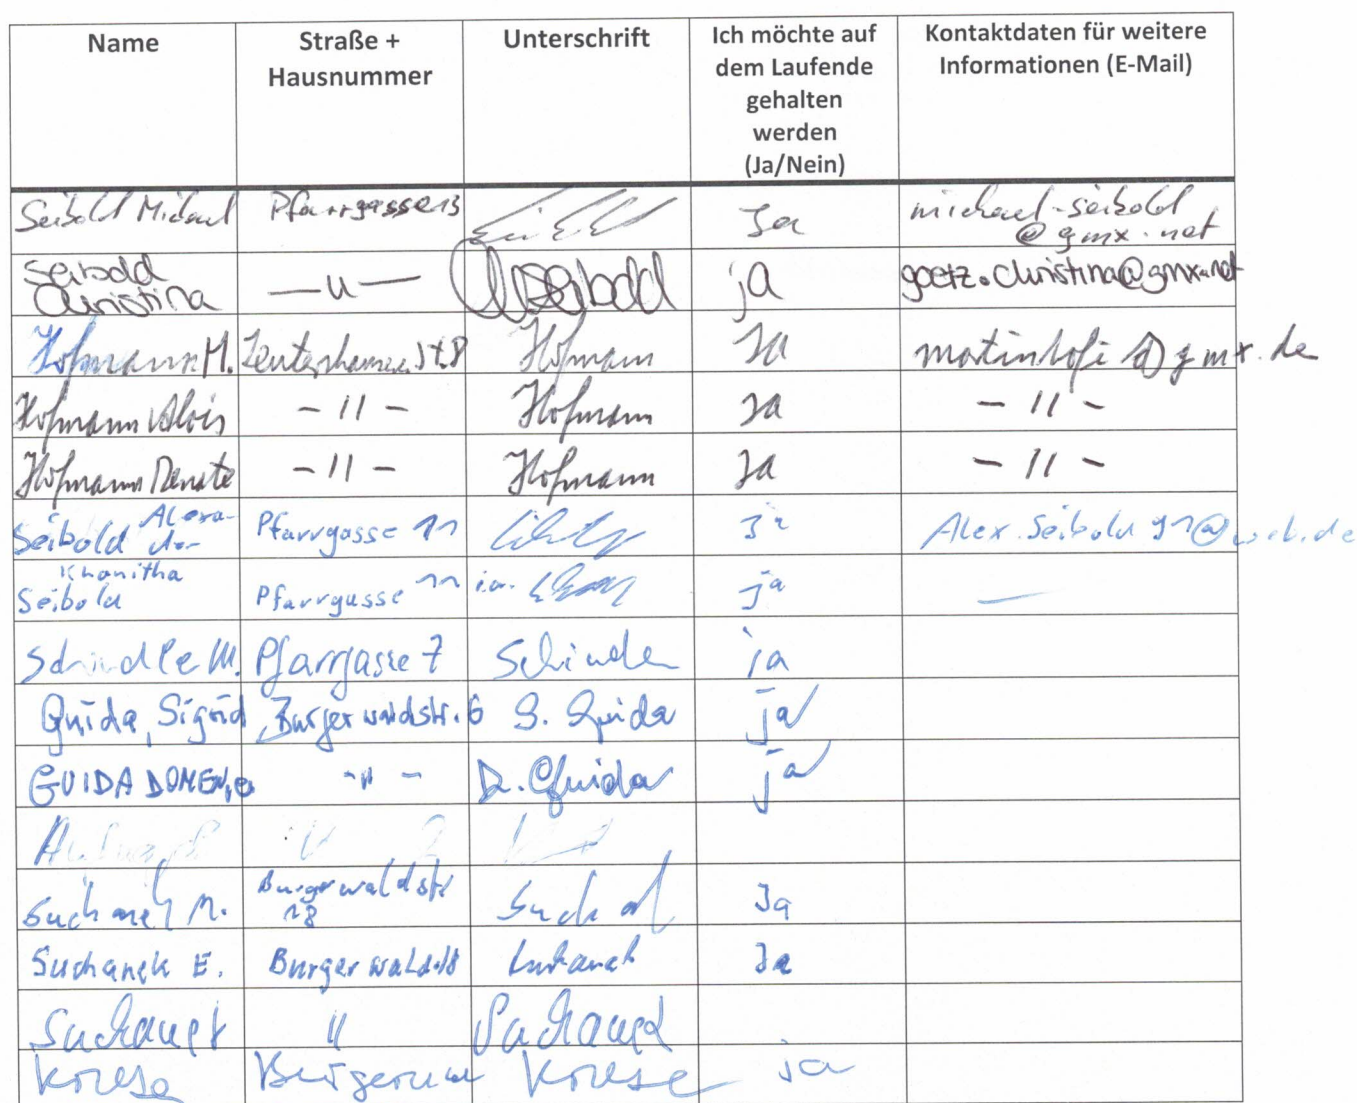 Name Straße + Hausnummer Unterschrift Ich möchte auf dem Laufende gehalten werden (Ja/Nein) Kontaktdaten für weitere Informationen (E-Mail)
Seibold Michael Pfarrgasse 13 Ja michael-seibold@gmx.net
Seibold Christina —"— Seibold ja goetz.christina@gmx.net
Hofmann M. Str. 8 Hofmann Ja martinhofi@gmx.de
Hofmann Alois -"- Hofmann Ja -"-
Hofmann Renate -"- Hofmann Ja -"-
Seibold Alexander Pfarrgasse 11 ja Alex.Seibold91@web.de
Khanitha Seibold Pfarrgasse 11 ja —
Schindle M. Pfarrgasse 7 ja
Guida, Sigrid Burgerwaldstr. 6 S. Guida ja
GUIDA -"- D. Guida ja
Suchanek M. Burgerwaldstr 18 Ja
Suchanek E. Burgerwald.18 Suchanek Ja
Suchanek " Suchanek
ja